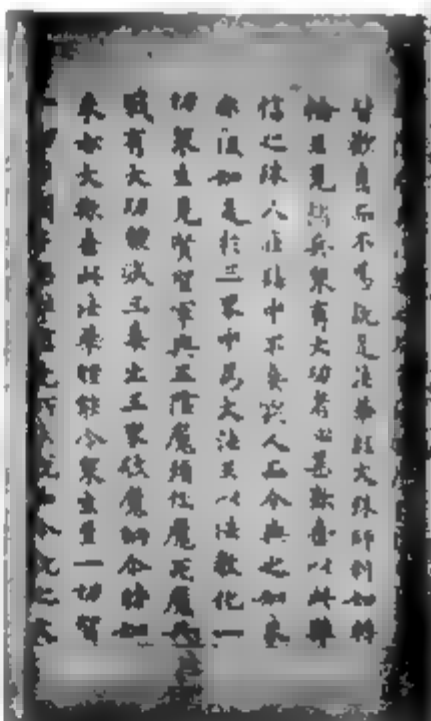 皆歡喜而不為說是法華經文殊師利如轉
輪王見諸兵眾有大功者心甚歡喜以此難
信之珠久在髻中不妄與人而今與之如來
亦復如是於三界中為大法王以法教化一
切眾生見賢聖軍與五陰魔煩惱魔死魔共
戰有大功勳滅三毒出三界破魔網爾時如
來亦大歡喜此法華經能令眾生至一切智